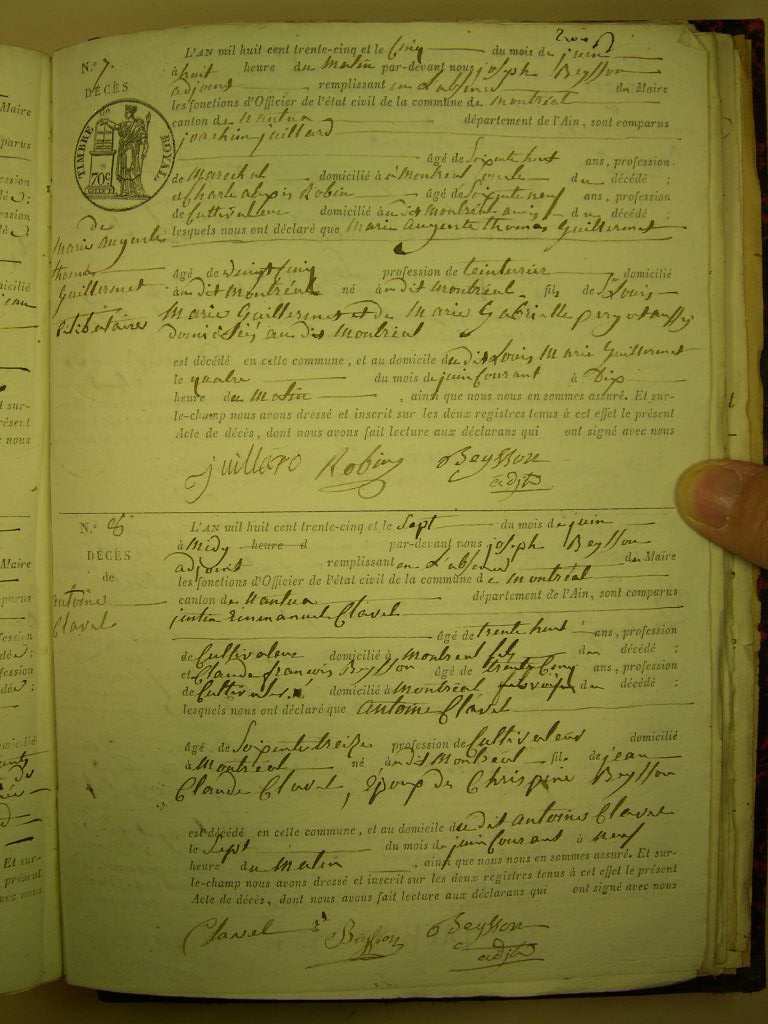 N.º 7.
DÉCÈS
TIMBRE ROYAL
70c
de
Marie auguste
thomas
Guillermet
célibataire
L'AN mil huit cent trente-cinq et le Cinq du mois de juin
à huit heure du Matin par-devant nous joseph Beysson
adjoint remplissant en l'absence du Maire
les fonctions d'Officier de l'état civil de la commune de montréal
canton de Nantua département de l'Ain, sont comparus
joachim juillard
âgé de Soixente huit ans, profession
de Marechal domicilié à Montreal oncle du décédé ;
et Charle alexis Robin âgé de Soixente neuf ans, profession
de Cultivateur domicilié audit Montréal du décédé ;
lesquels nous ont déclaré que Marie Auguste thomas Guillermet
âgé de vingt Cinq profession de teinturier domicilié
audit Montréal né audit Montréal fils de Louis
Marie Guillermet et de Marie Gabrielle
domiciliés audit Montréal
est décédé en cette commune, et au domicile dudit Louis Marie Guillermet
le quatre du mois de juin Courant à Dix
heure du Matin , ainsi que nous nous en sommes assuré. Et sur-
le-champ nous avons dressé et inscrit sur les deux registres tenus à cet effet le présent
Acte de décès, dont nous avons fait lecture aux déclarans qui ont signé avec nous
juillard Robin Beysson
adjt
N.º 8
DÉCÈS
de
antoine
Clavel
L'AN mil huit cent trente-cinq et le Sept du mois de juin
à Midy heure d par-devant nous joseph Beysson
adjoint remplissant en l'absence du Maire
les fonctions d'Officier de l'état civil de la commune de montréal
canton de Nantua département de l'Ain, sont comparus
justin Emmanuel Clavel
âgé de trente huit ans, profession
de Cultivateur domicilié à Montreal fils du décédé ;
et Claude françois Beysson âgé de trente Cinq ans, profession
de Cultivateur domicilié à Montréal du décédé ;
lesquels nous ont déclaré que antoine Clavel
âgé de Soixente treize profession de Cultivateur domicilié
à Montréal né audit Montreal fils de jean
Claude Clavel, Epoux de Chrispine Beysson
est décédé en cette commune, et au domicile dudit antoine Clavel
le Sept du mois de juin Courant à neuf
heure du Matin , ainsi que nous nous en sommes assuré. Et sur-
le-champ nous avons dressé et inscrit sur les deux registres tenus à cet effet le présent
Acte de décès, dont nous avons fait lecture aux déclarans qui ont signé avec nous
Clavel Beysson Beysson
adjt